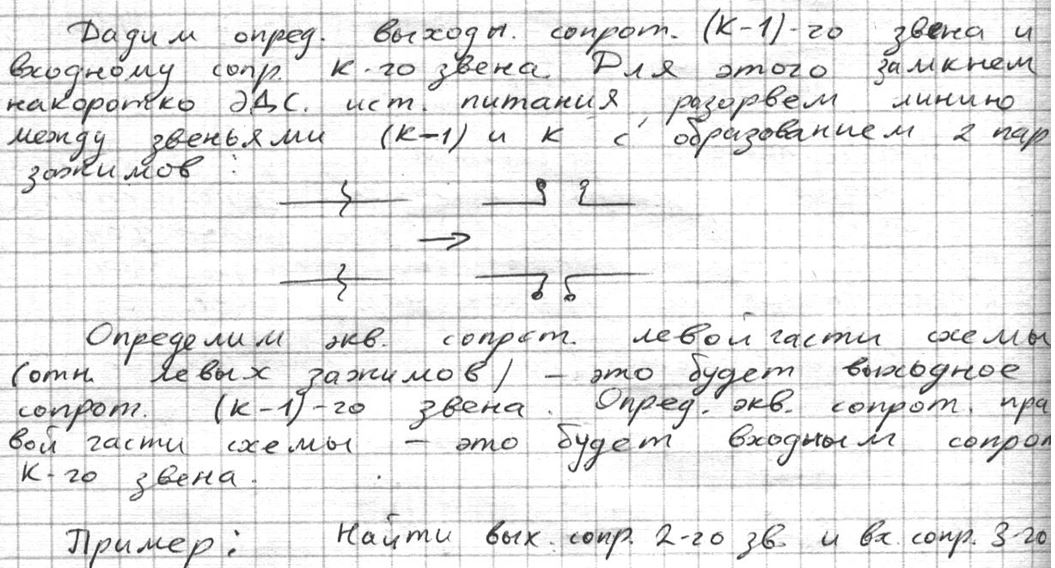 Дадим опред. выходн. сопрот. (К-1)-го звена и
входному сопр. к-го звена. Для этого замкнем
накоротко ЭДС. ист. питания, разорвем линию
между звеньями (К-1) и К с образованием 2 пар
зажимов :
Определим экв. сопрот. левой части схемы
(отн. левых зажимов) – это будет выходное
сопрот. (К-1)-го звена. Опред. экв. сопрот. пра
вой части схемы – это будет входным сопрот
К-го звена.
Пример: Найти вых. сопр. 2-го зв. и вх. сопр. 3-го